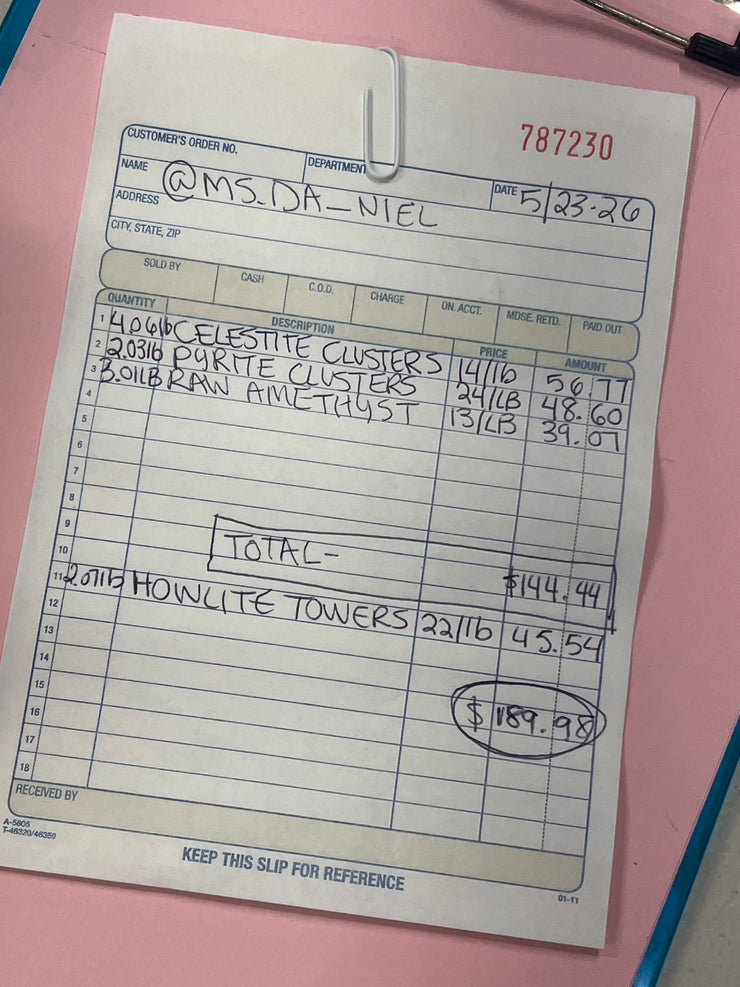 787230
CUSTOMER'S ORDER NO.
DEPARTMENT
DATE 5/23-26
NAME @MS.DA_NIEL
ADDRESS
CITY, STATE, ZIP
SOLD BY CASH C.O.D. CHARGE ON. ACCT. MDSE. RETD. PAID OUT
QUANTITY DESCRIPTION PRICE AMOUNT
1 4.06lb CELESTITE CLUSTERS 14/lb 56.77
2 2.03lb PYRITE CLUSTERS 24/LB 48.60
3 3.01LB RAW AMETHYST 13/LB 39.07
4
5
6
7
8
9
10 TOTAL- $144.44
11 2.07lb HOWLITE TOWERS 22/lb 45.54
12
13
14
15 $189.98
16
17
18
RECEIVED BY
A-5805
T-46320/46350
KEEP THIS SLIP FOR REFERENCE
01-11